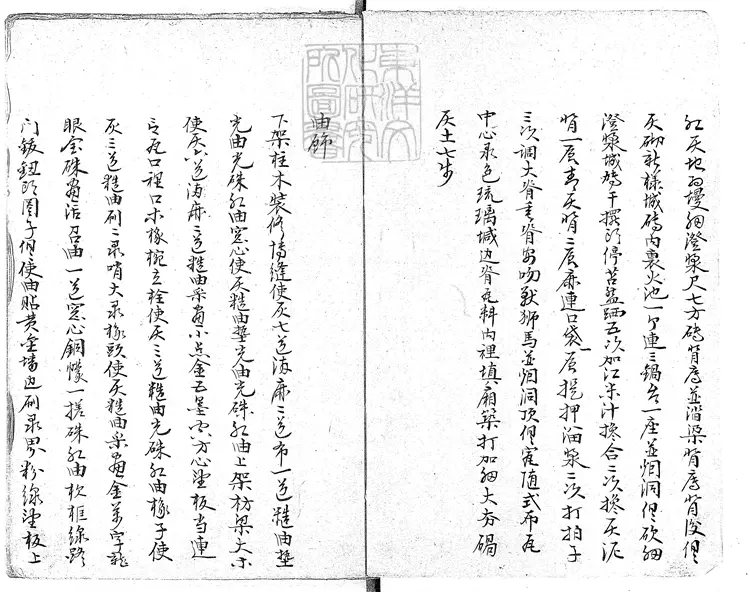 紅灰地面墁細澄漿尺七方磚背底並潛梁背底背後俱
灰砌新樣城磚內裏火池一個連三鍋台一座並烟洞俱砍細
澄漿城磚干擺頭停苫藍晒五次加江米汁攙合二次攙灰泥
背一層青灰背二層麻連口袋一層提押油漿二次打拍子
三次調大脊垂脊安吻獸獅馬並烟洞頂俱隨式布瓦
中心录色琉璃堿边脊瓦料內裡填廂築打加細大夯碢
灰土七步
油飾
下架柱木裝修博縫使灰七道滿麻二道布一道糙油墊
光油光硃紅油窓心使灰糙油墊光油光硃紅油上架枋梁大木
使灰六道滿麻二道糙油彩畫小点金五墨空方心望板当連
瓦口裡口木椽椀立栓使灰三道糙油光硃紅油椽子使
灰三道糙油刷二录哨大录椽頭使灰糙油彩畫金萬字龍
眼金硃畫活召油一道窓心銅幪一搓硃紅油坎框線路
门鈸鈕頭圈子俱使油貼黃金墻边刷录界粉線望板上